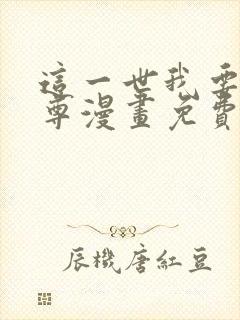 這一世我要
尊漫畫免費
辰機唐紅豆